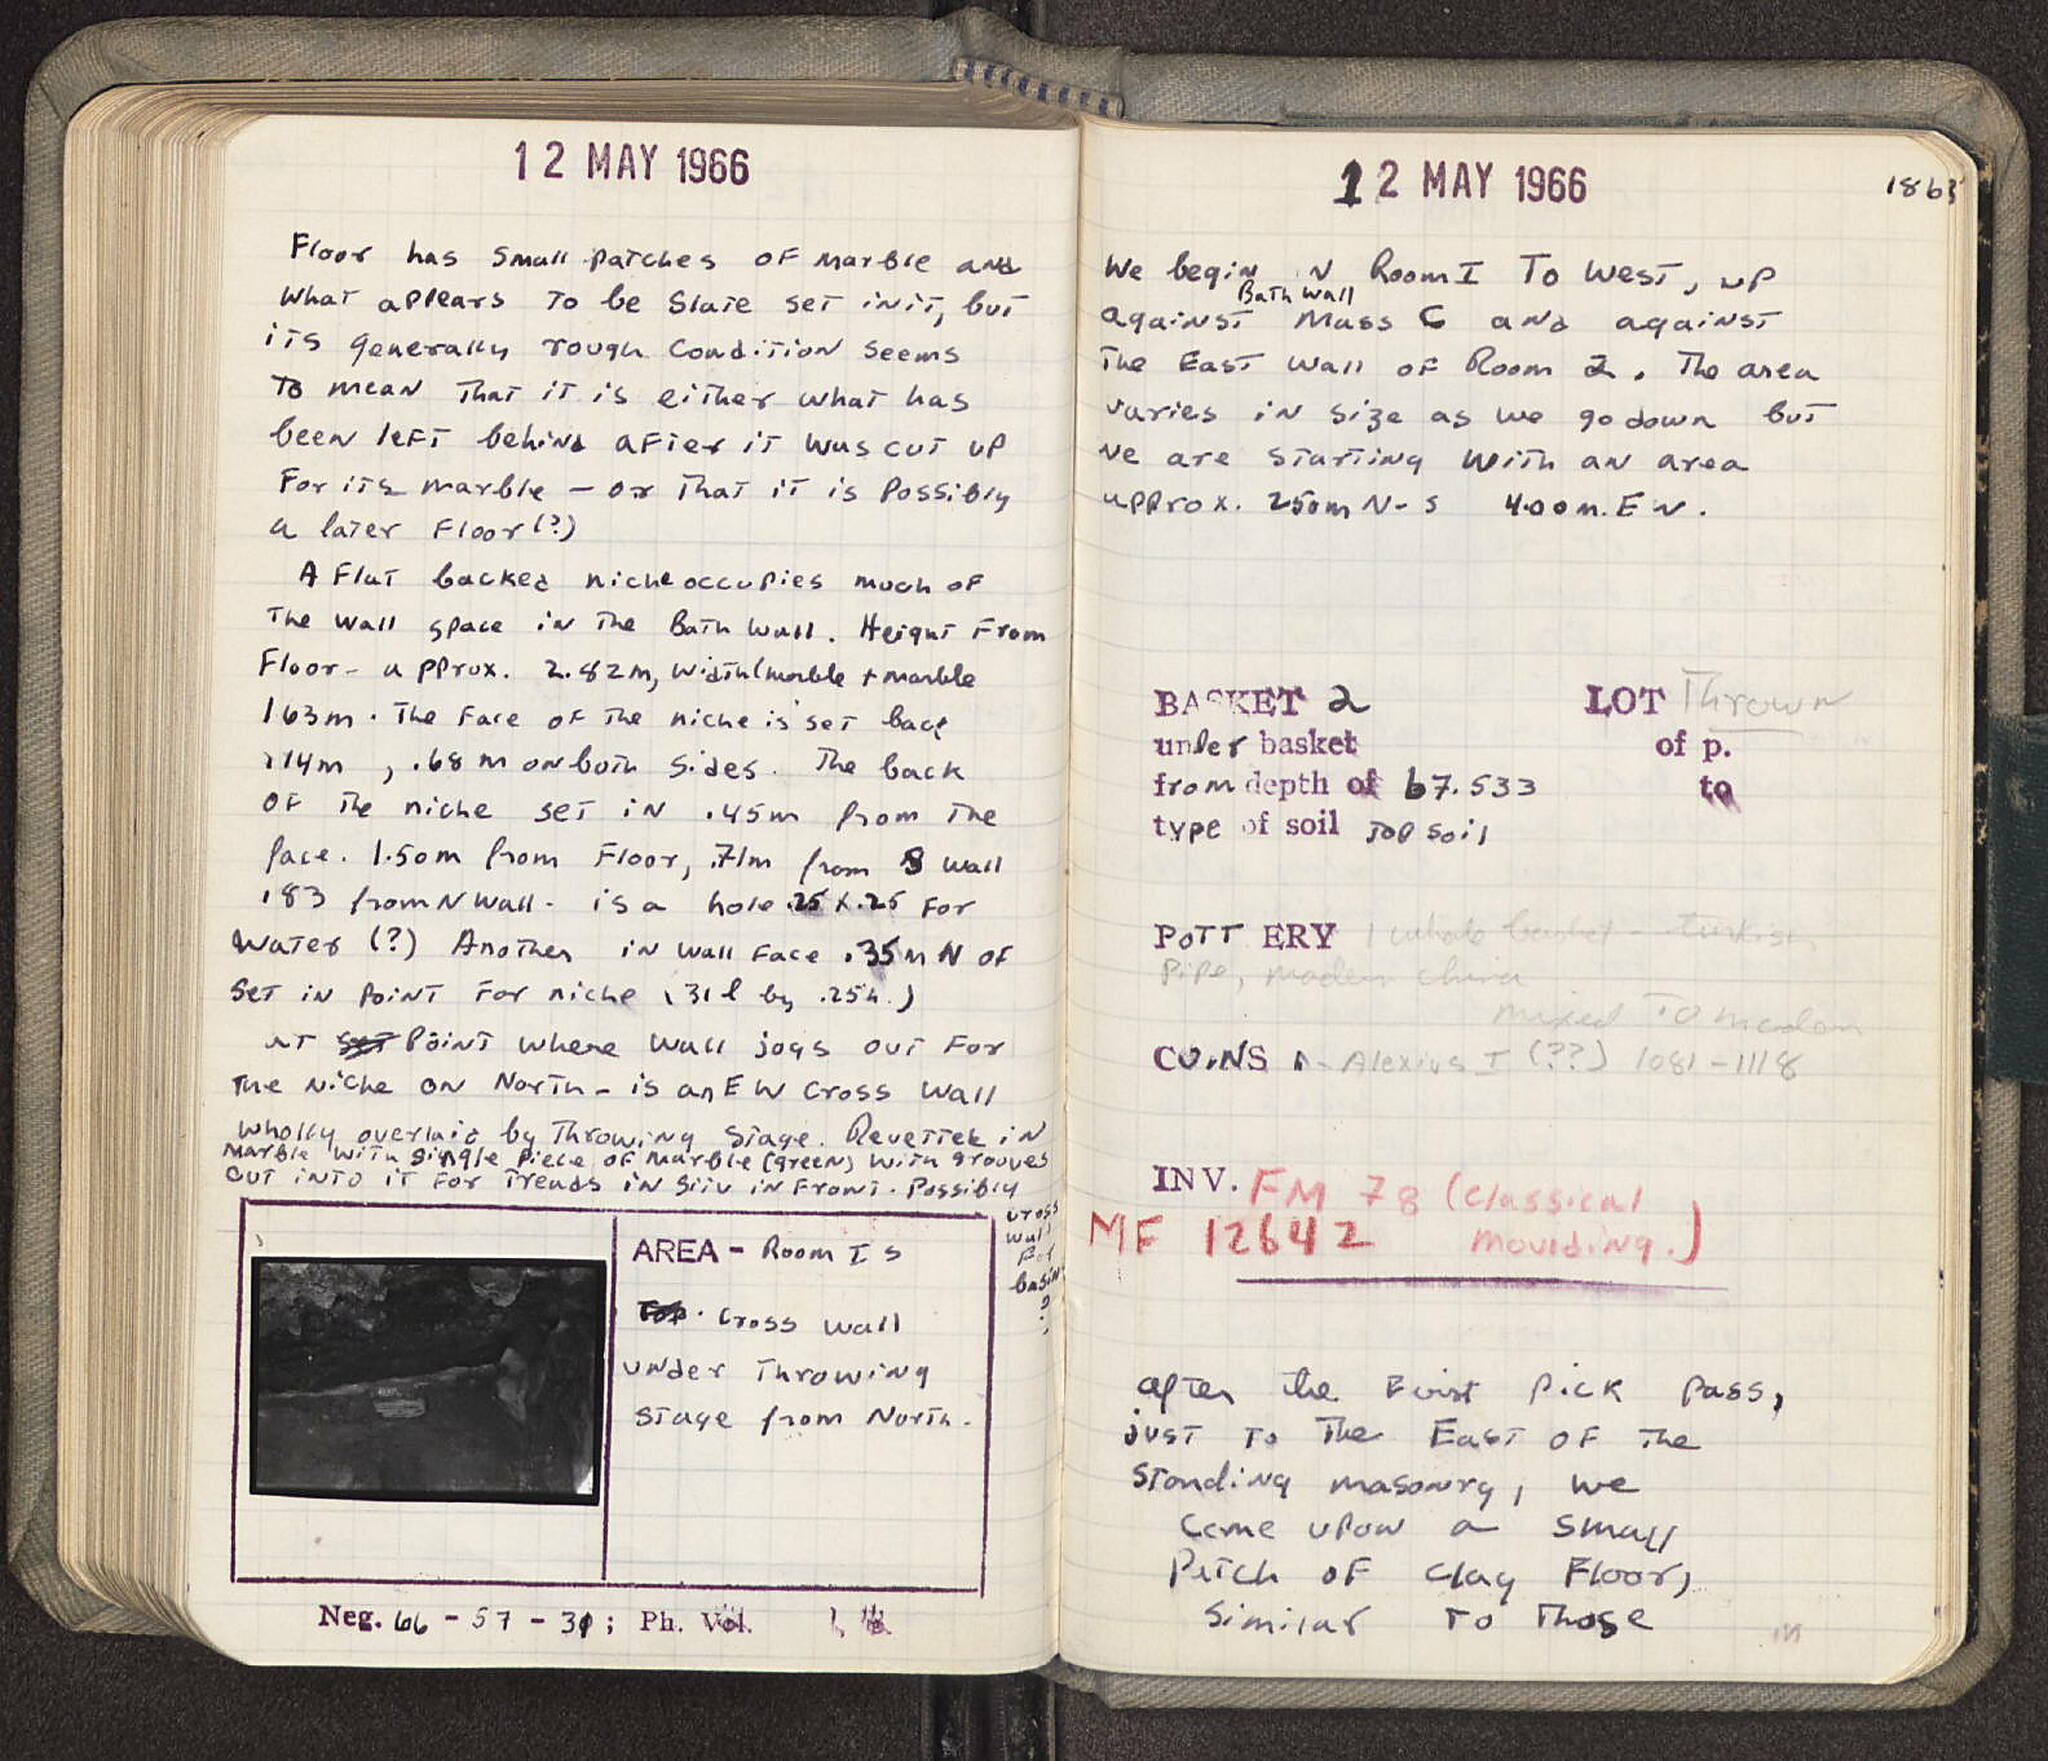 12 MAY 1966
Floor has small patches of marble and
what appears to be slate set in it, but
its generally rough condition seems
to mean that it is either what has
been left behind after it was cut up
for its marble - or that it is possibly
a later floor (?)
A flat backed niche occupies much of
the wall space in the Bath wall. Height from
Floor - approx. 2.82m, width (marble + marble
163m. The face of the niche is set back
.14m, .68m on both sides. The back
of the niche set in .45m from the
face. 1.50m from Floor, .71m from S wall
.83 from N wall - is a hole .25 x .25 for
water (?) Another in wall face .35m N of
set in point for niche (31 l by .25h.)
at point where wall jogs out for
the niche on North - is an EW cross wall
wholly overlaid by throwing stage. Revetted in
marble with single piece of marble (green) with grooves
cut into it for treads in situ in front. Possibly
cross
wall
for
basin
?
AREA - Room I S
Cross wall
under throwing
stage from North.
Neg. 66 - 57 - 31; Ph. Vol.
12 MAY 1966
1863
We begin in Room I to west, up
Bath wall
against Mass C and against
the East wall of Room 2. The area
varies in size as we go down but
we are starting with an area
approx. 250m N-S 4.00m. E W.
BASKET 2 LOT Thrown
under basket of p.
from depth of 67.533 to
type of soil Top soil
POTTERY 1 whole basket - turkish
pipe, modern china
mixed to modern
COINS 1 - Alexius I (??) 1081-1118
INV. FM 78 (Classical
MF 12642 moulding.)
after the first pick pass,
just to the East of the
standing masonry, we
came upon a small
patch of clay floor,
similar to those